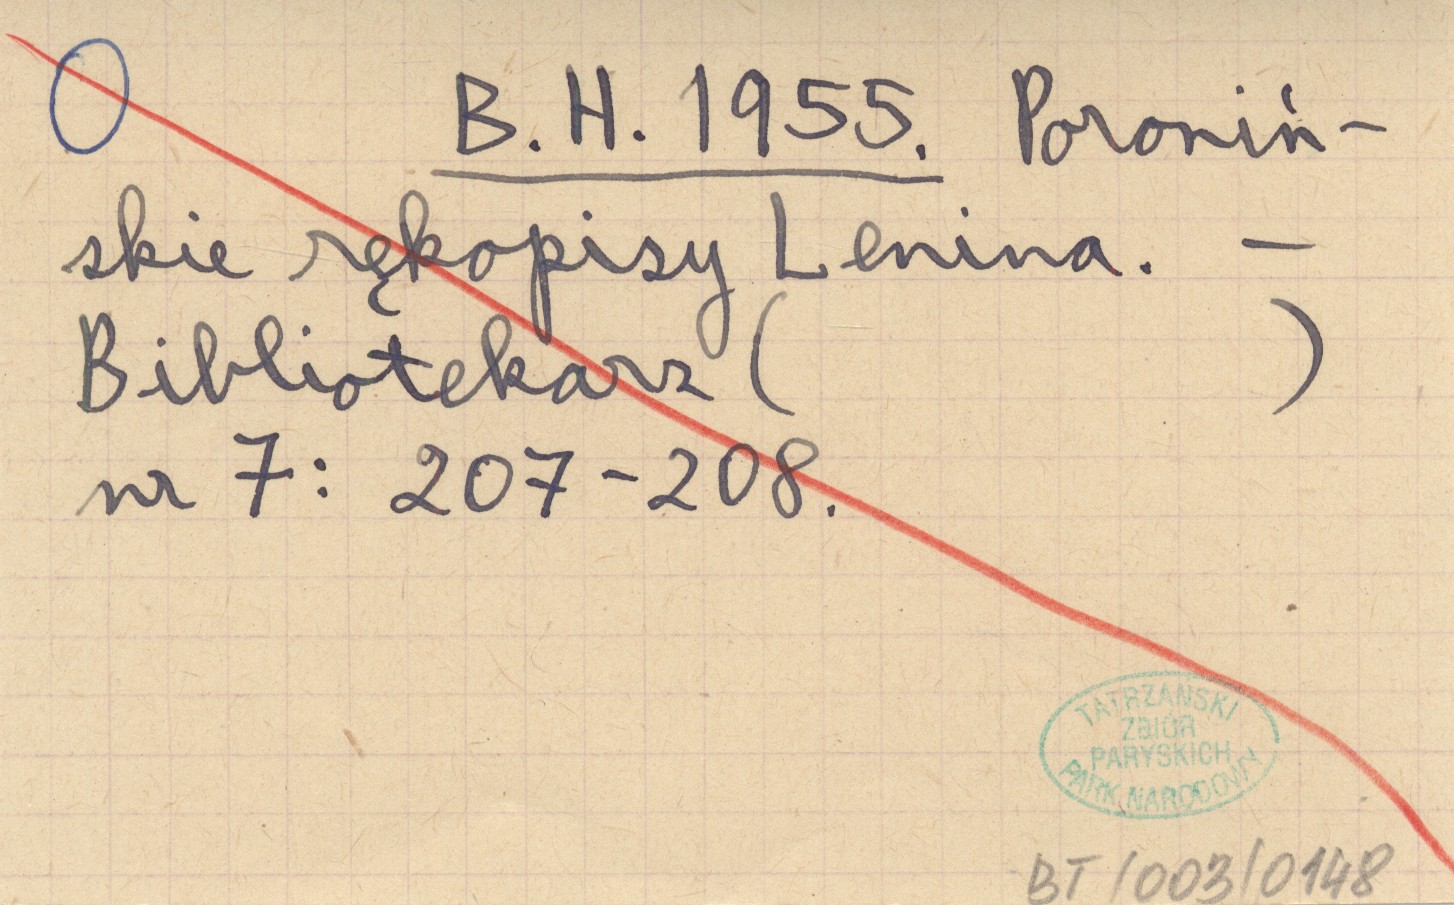 B.H. 1955. Poroniń-
skie rękopisy Lenina. –
Bibliotekarz ( )
nr 7: 207-208.
TATRZAŃSKI
ZBIÓR
PARYSKICH
PARK NARODOWY
BT/003/0148